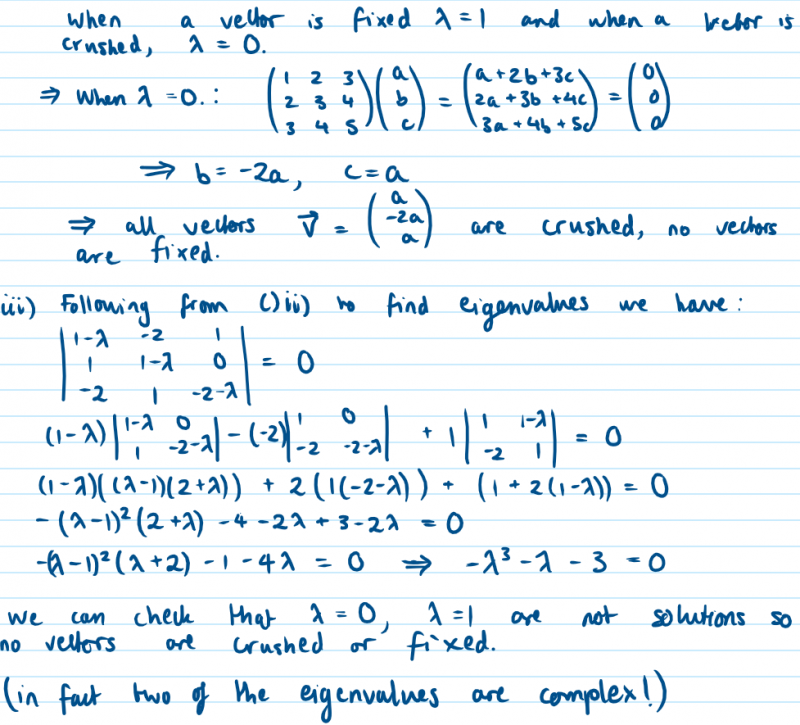 when a vector is fixed λ=1 and when a vector is
crushed, λ = 0.
⇒ When λ =0. : (1 2 3; 2 3 4; 3 4 5)(a; b; c) = (a+2b+3c; 2a+3b+4c; 3a+4b+5c) = (0; 0; 0)
⇒ b = -2a, c = a
⇒ all vectors v⃗ = (a; -2a; a) are crushed, no vectors
are fixed.
iii) Following from ()ii) to find eigenvalues we have :
|1-λ -2 1; 1 1-λ 0; -2 1 -2-λ| = 0
(1-λ)|1-λ 0; 1 -2-λ| - (-2)|1 0; -2 -2-λ| + 1|1 1-λ; -2 1| = 0
(1-λ)((λ-1)(2+λ)) + 2(1(-2-λ)) + (1+2(1-λ)) = 0
-(λ-1)²(2+λ) -4 -2λ + 3-2λ = 0
-(λ-1)²(λ+2) -1 -4λ = 0 ⇒ -λ³ -λ - 3 =0
we can check that λ = 0, λ =1 are not solutions so
no vectors are crushed or fixed.
(in fact two of the eigenvalues are complex!)